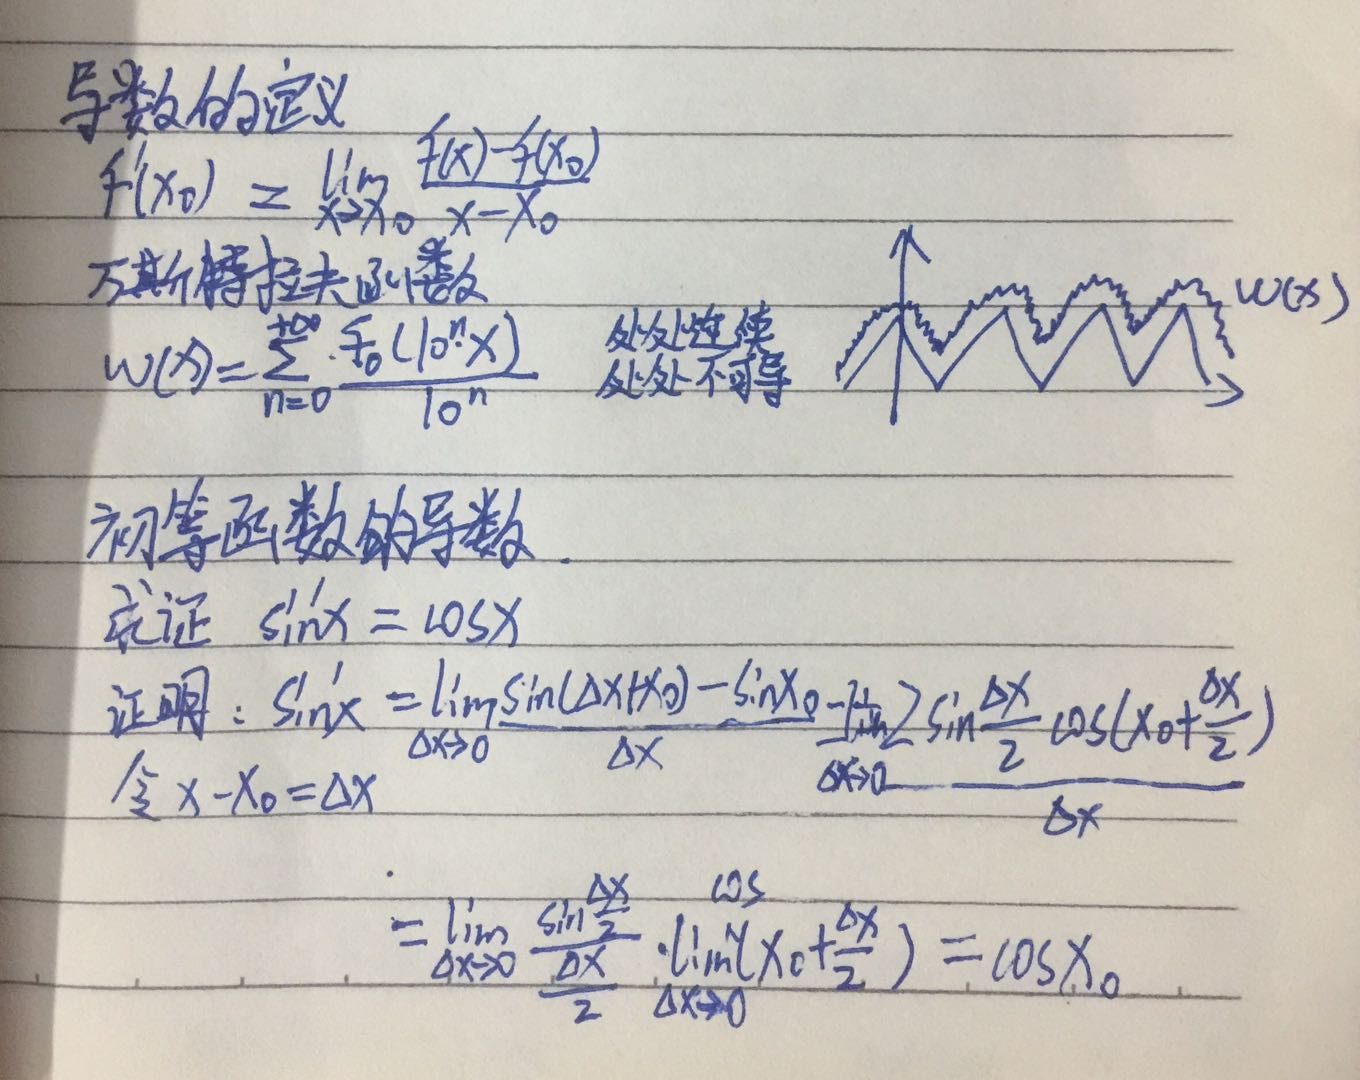 导数的定义
f'(x₀) = lim x→x₀ (f(x)-f(x₀))/(x-x₀)
万斯特拉夫函数
W(x) = Σ n=0 +∞ f₀(10ⁿx)/10ⁿ
处处连续
处处不可导
W(x)
初等函数的导数
求证 sin'x = cosx
证明: sin'x = lim Δx→0 (sin(Δx+x₀)-sinx₀)/Δx = lim Δx→0 (2 sin Δx/2 cos(x₀+Δx/2))/Δx
令 x-x₀=Δx
= lim Δx→0 (sin Δx/2)/(Δx/2) · lim Δx→0 cos(x₀+Δx/2) = cosx₀